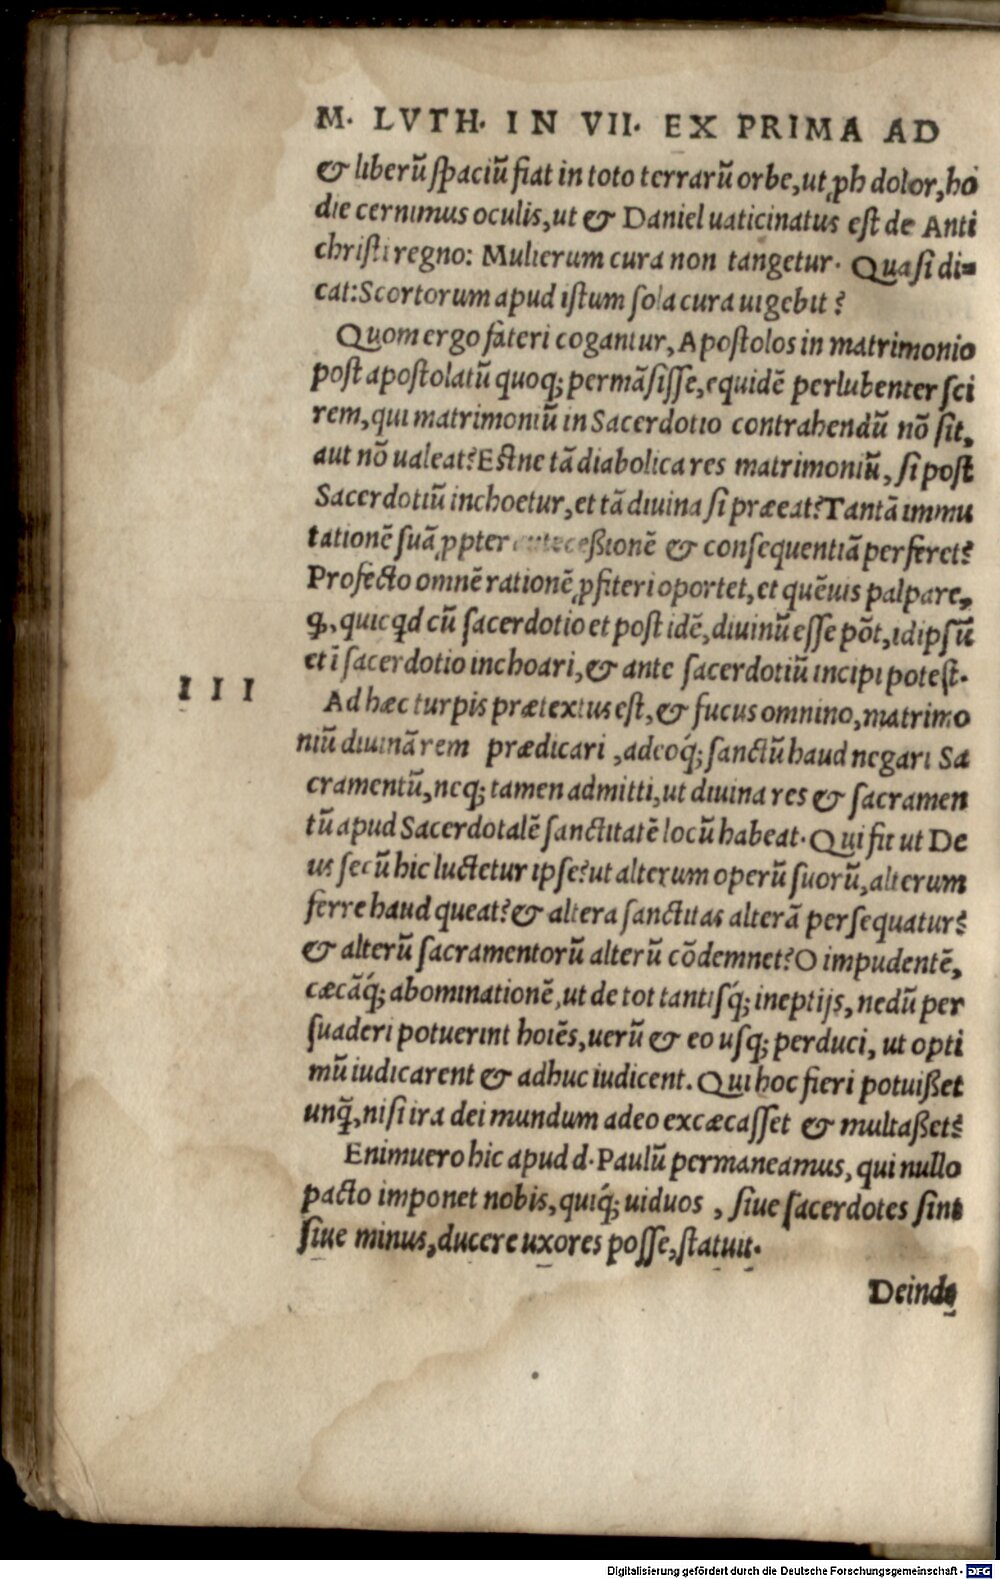 M. LVTH. IN VII. EX PRIMA AD
& liberū spaciū fiat in toto terrarū orbe, ut ꝓh dolor, ho
die cernimus oculis, ut & Daniel uaticinatus est de Anti
christi regno: Mulierum cura non tangetur. Quasi di=
cat: Scortorum apud istum sola cura uigebit?
Quom ergo fateri cogantur, Apostolos in matrimonio
post apostolatū quoq; permāsisse, equidē perlubenter sci
rem, qui matrimoniū in Sacerdotio contrahendū nō sit,
aut nō ualeat? Estne tā diabolica res matrimoniū, si post
Sacerdotiū inchoetur, et tā diuina si præeat? Tantā immu
tationē suā ꝓpter anteceßionē & consequentiā perferet?
Profecto omnē rationē ꝓfiteri oportet, et quēuis palpare,
ꝙ, quicqd cū sacerdotio et post idē, diuinū esse pōt, idipsū
et ī sacerdotio inchoari, & ante sacerdotiū incipi potest.
III
Ad hæc turpis prætextus est, & fucus omnino, matrimo
niū diuinā rem prædicari, adeoq́; sanctū haud negari Sa
cramentū, neq; tamen admitti, ut diuina res & sacramen
tū apud Sacerdotalē sanctitatē locū habeat. Qui fit ut De
us secū hic luctetur ipse? ut alterum operū suorū, alterum
ferre haud queat? & altera sanctitas alterā persequatur?
& alterū sacramentorū alterū cōdemnet? O impudentē,
cæcāq́; abominationē, ut de tot tantisq́; ineptijs, nedū per
suaderi potuerint hoīēs, uerū & eo usq; perduci, ut opti
mū iudicarent & adhuc iudicent. Qui hoc fieri potuißet
unq̄, nisi ira dei mundum adeo excæcasset & multaßet?
Enimuero hic apud d. Paulū permaneamus, qui nullo
pacto imponet nobis, quiq́; uiduos, siue sacerdotes sint
siue minus, ducere uxores posse, statuit.
Deinde
Digitalisierung gefördert durch die Deutsche Forschungsgemeinschaft - DFG